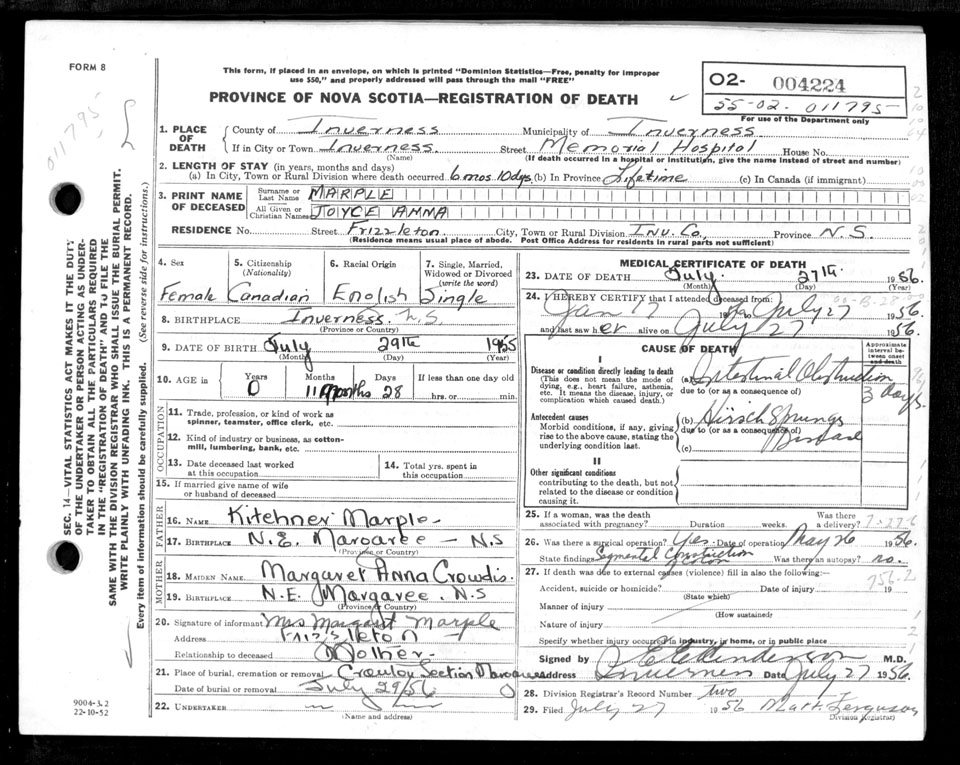 FORM 8
This form, if placed in an envelope, on which is printed "Dominion Statistics—Free, penalty for improper
use $50," and properly addressed will pass through the mail "FREE"
O2- 004224
55-02. 011795
For use of the Department only
PROVINCE OF NOVA SCOTIA—REGISTRATION OF DEATH
011795
1. PLACE OF DEATH
County of Inverness Municipality of Inverness
If in City or Town Inverness Street Memorial Hospital House No.
(Name) (If death occurred in a hospital or institution, give the name instead of street and number)
2. LENGTH OF STAY (in years, months and days)
(a) In City, Town or Rural Division where death occurred 6 mos. 10 dys. (b) In Province Lifetime (c) In Canada (if immigrant)
3. PRINT NAME OF DECEASED
Surname or Last Name MARPLE
All Given or Christian Names JOYCE ANNA
RESIDENCE No. Street Frizzleton City, Town or Rural Division Inv. Co. Province N.S.
(Residence means usual place of abode. Post Office Address for residents in rural parts not sufficient)
4. Sex Female
5. Citizenship (Nationality) Canadian
6. Racial Origin English
7. Single, Married, Widowed or Divorced (write the word) Single
8. BIRTHPLACE Inverness N.S.
(Province or Country)
9. DATE OF BIRTH July 29th 1955
(Month) (Day) (Year)
10. AGE in Years 0 Months 11 Months Days 28 If less than one day old hrs. or min.
OCCUPATION
11. Trade, profession, or kind of work as
spinner, teamster, office clerk, etc.
12. Kind of industry or business, as cotton-
mill, lumbering, bank, etc.
13. Date deceased last worked
at this occupation
14. Total yrs. spent in
this occupation
15. If married give name of wife
or husband of deceased
FATHER
16. NAME Kitchner Marple
17. BIRTHPLACE N.E. Margaree - N.S
(Province or Country)
MOTHER
18. MAIDEN NAME Margaret Anna Crowdis.
19. BIRTHPLACE N.E. Margaree. N.S
(Province or Country)
20. Signature of informant Mrs Margaret Marple
Address Frizzleton
Relationship to deceased Mother
21. Place of burial, cremation or removal Section Margaree
Date of burial or removal July 29/56
22. UNDERTAKER
(Name and address)
MEDICAL CERTIFICATE OF DEATH
23. DATE OF DEATH July 27th. 1956
(Month) (Day) (Year)
24. I HEREBY CERTIFY that I attended deceased from:
Jan 17 1956 to July 27 1956.
and last saw her alive on July 27 1956.
CAUSE OF DEATH
Approximate interval between onset and death
I
Disease or condition directly leading to death
(This does not mean the mode of
dying, e.g., heart failure, asthenia,
etc. It means the disease, injury, or
complication which caused death.)
(a) Intestinal Obstruction 3 days.
due to (or as a consequence of)
Antecedent causes
Morbid conditions, if any, giving
rise to the above cause, stating the
underlying condition last.
(b) Hirschsprungs Disease
due to (or as a consequence of)
(c)
II
Other significant conditions
contributing to the death, but not
related to the disease or condition
causing it.
25. If a woman, was the death
associated with pregnancy? Duration weeks. Was there a delivery?
26. Was there a surgical operation? Yes. Date of operation May 26 1956.
State findings Segmental Constriction of colon Was there an autopsy? no.
27. If death was due to external causes (violence) fill in also the following:—
756.2
Accident, suicide or homicide? Date of injury 19
(State which)
Manner of injury
(How sustained)
Nature of injury
Specify whether injury occurred in industry, in home, or in public place
Signed by M.D.
Address Inverness Date July 27 1956.
28. Division Registrar's Record Number two
29. Filed July 27 1956 Matt. Ferguson
Division Registrar)
SEC. 14—VITAL STATISTICS ACT MAKES IT THE DUTY
OF THE UNDERTAKER OR PERSON ACTING AS UNDER-
TAKER TO OBTAIN ALL THE PARTICULARS REQUIRED
IN THE "REGISTRATION OF DEATH" AND TO FILE THE
SAME WITH THE DIVISION REGISTRAR WHO SHALL ISSUE THE BURIAL PERMIT.
WRITE PLAINLY WITH UNFADING INK. THIS IS A PERMANENT RECORD.
Every item of information should be carefully supplied. (See reverse side for instructions.)
9004-3.2
22-10-52